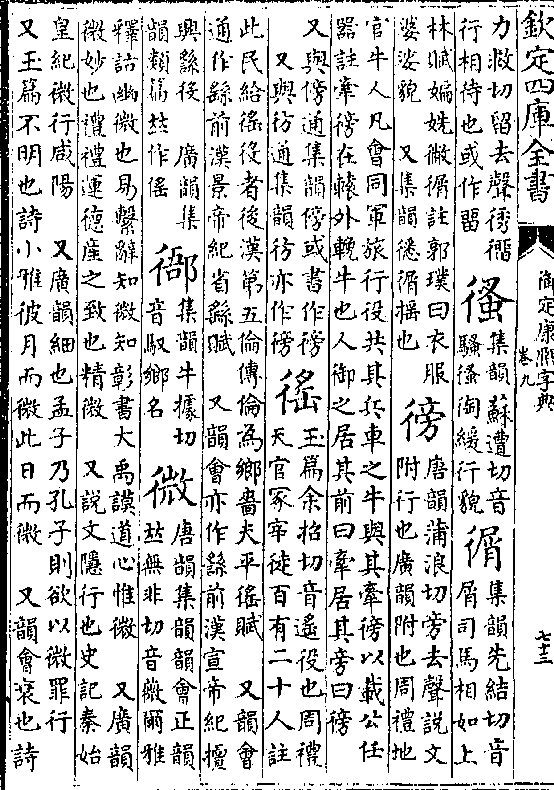 欽定四庫全書
御定康熙字典
卷九
七十三
力救切留去聲
行相待也或作畱
集韻蘇遭切音
騷 淘緩行貌
㣯
集韻先結切音
屑司馬相如上
林賦媥姺徶㣯註郭璞曰衣服
婆娑貌　又集韻 㣯搖也
徬
唐韻蒲浪切旁去聲說文
附行也廣韻附也周禮地
官牛人凡會同軍旅行役共其兵車之牛與其牽徬以載公任
器註牽徬在轅外輓牛也人御之居其前曰牽居其旁曰徬
又與傍通集韻傍或書作徬
又與彷通集韻彷亦作徬
徭
玉篇余招切音遙役也周禮
天官冢宰徒百有二十人註
此民給徭役者後漢第五倫傳倫為鄉嗇夫平徭賦　又韻會
通作繇前漢景帝紀省繇賦　又韻會亦作繇前漢宣帝紀擅
興繇役　廣韻集
韻類篇𠀤作傜
集韻牛據切
音馭鄉名
微
唐韻集韻韻會正韻
𠀤無非切音薇爾雅
釋詁幽微也易繫辭知微知彰書大禹謨道心惟微　又廣韻
微妙也禮禮運德產之致也精微　又說文隱行也史記秦始
皇紀微行咸陽　又廣韻細也孟子乃孔子則欲以微罪行
又玉篇不明也詩小雅彼月而微此日而微　又韻會衰也詩